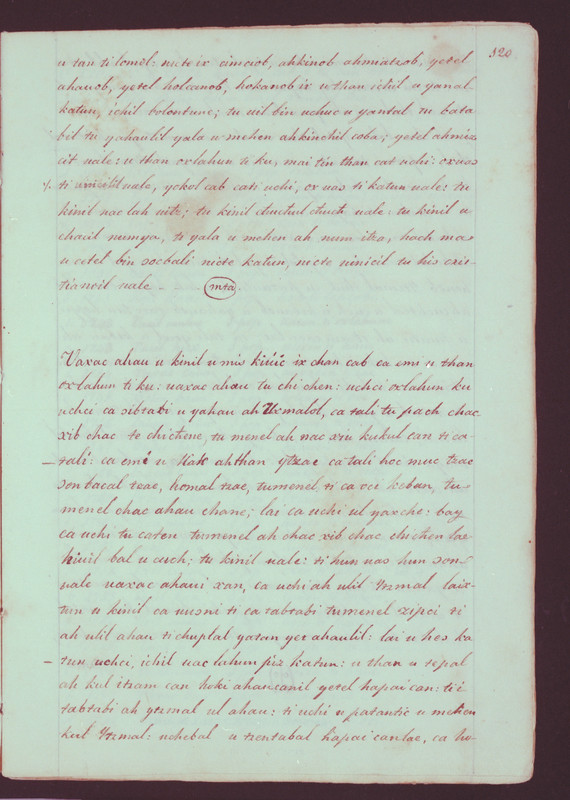 320
u tan ti lomil: nicte ix cimciob, ahkinob ahmiatzob, yetel
ahauob, yetel holcanob, hokanob ix u than ichil u yanal
katun, ichil bolontunc; tu uil bin uchuc u yantal tu bata
bil tu yahaulil yala u mehen ahkinchil coba; yetel ahmiz
cit uale: u than oxlahun ti ku, mai tin than cat uchi: ox uas
ti uinicil uale, yokol cab cati uchi, ox uas ti katun uale: tu
kinil nac lah uitz; tu kinil chuchul chuch uale: tu kinil u
chacil numya, ti yala u mehen ah num itza, hach ma
u cetel bin socbali nicte katun, nicte uinicil tu his cris-
tianoil uale - mta.
Vaxac ahau u kinil u mis kiuic ix chan cab ca emi u than
oxlahun ti ku: uaxac ahau tu chi chen: uchci oxlahun ku
uchci ca sibtabi u yahau ah Uxmalob, ca tali tu pach chac
xib chac te chichene, tu menel ah nac xiu kukul can ti ca-
tali: ca emi u kak ahthan ytzae ca tali hoc muc tzac
son bacal tzae, homal tzae, tumenel ti ca oci keban, tu-
menel chac ahau chane; lai ca uchi ul yaxche: bay
ca uchi tu caten tumenel ah chac xib chac chichen lae
kinil bal u cuch; tu kinil uale: ti hun uas hun son-
uale uaxac ahaui xan, ca uchi ah ulil Ytzmal laix-
tun u kinil ca uusni ti ca tabtabi tumenel zipci ti
ah ulil ahau ti chuplal yatan yet ahaulil: lai u hes ka
tun uchci, ichil uac lahun pis katun: u than u tepal
ah kul itzam can hoki ahaucanil yetel hapai can: ti i
tabtabi ah ytzmal ul ahau: ti uchi u patantic u mehen
kul Ytzmal: uchebal u tzentabal hapai can lae, ca hu-